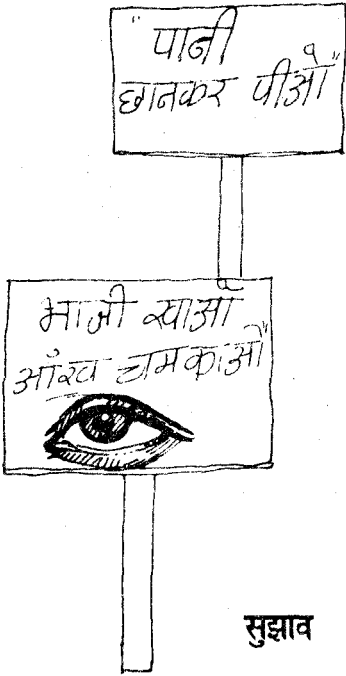 "पानी
छानकर पीओ"
भाजी खाओ
आँख चमकाओ"
सुझाव